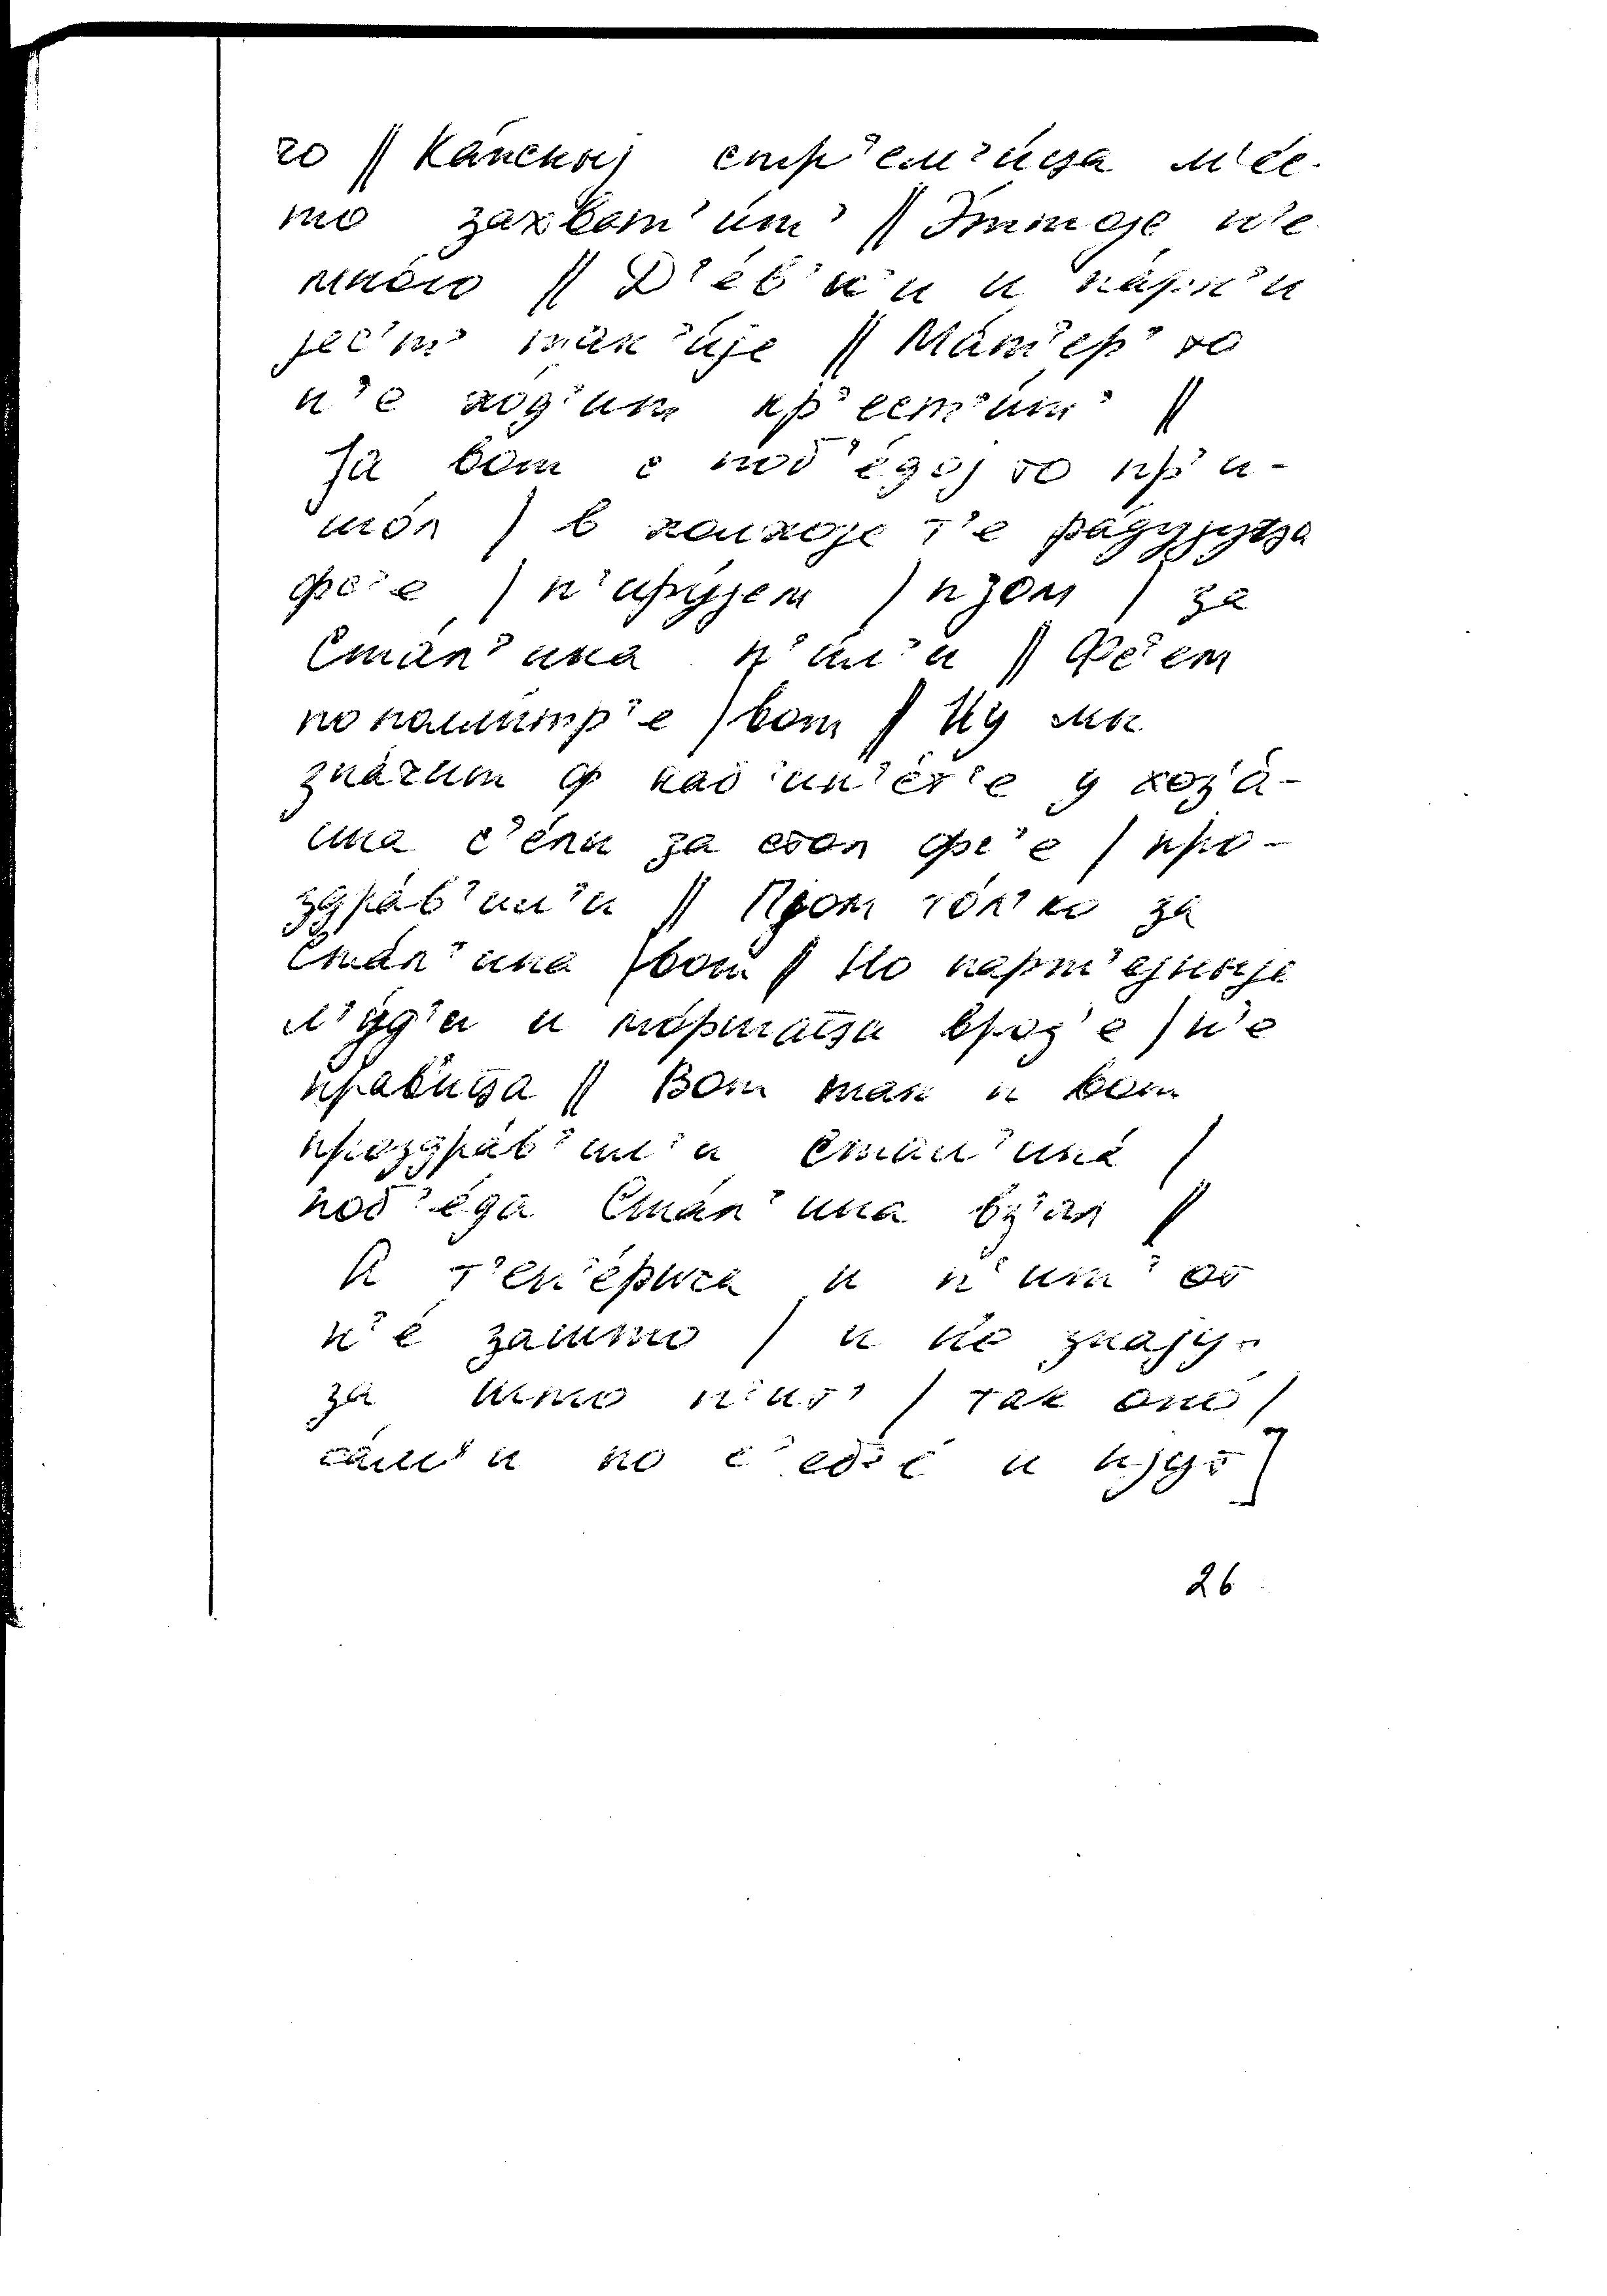 го // Ка́пскыj стр'ем'и́цца м'е́с-
то захват'и́т' // Э́ттоjе н'е
мно́го // Д'е́в'к'и и па́рн'и
jес'т' так'и́jе // Ма́т'ер' то
н'е хо́д'ит кр'ест'и́т' //
Jа вот с поб'е́доj то пр'и-
шо́л / в колхоjе т'е ра́дуjуцца
фс'е / п'иру́jем / пjом / за
Ста́л'ина п'и́л'и // Фс'ем
по поллитр'е / вот // Ну мы
зна́чит ф каб'ин'е́т'е у хоз'а́-
ина с'е́ли за стол фс'е / про-
здра́в'ил'и // Пjом то́л'ко за
Ста́л'ина / вот // Но парт'еjныjе
л'у́д'и и мо́рщацца врод'е / н'е
нравицца // Вот так и вот
проздра́в'ил'и Стал'ина́ /
поб'е́да Ста́л'ина вз'ал //
А т'еп'е́рича и п'ит' от
н'е́ зашто / и не знаjу.
за што п'ит' / так оно́ /
са́м'и по с'еб'е́ и пjут]
26